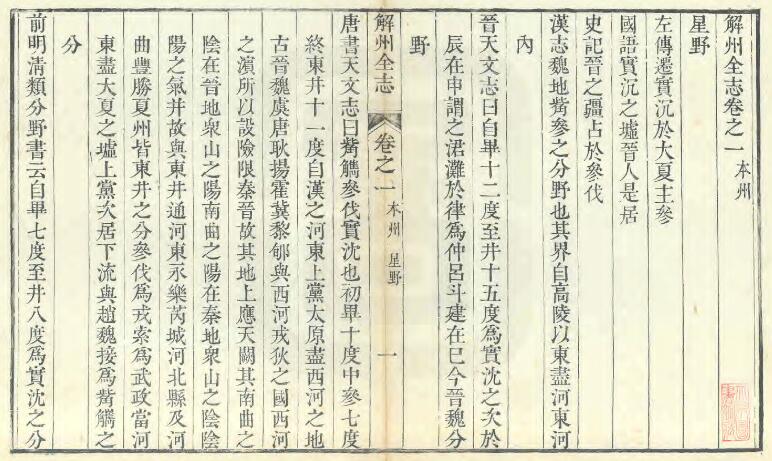 解州全志卷之一 本州
星野
左傳遷實沉於大夏主參
國語實沉之墟晉人是居
史記晉之疆占於參伐
漢志魏地觜參之分野也其界自高陵以東盡河東河
內
晉天文志曰自畢十二度至井十五度為實沈之次於
辰在申謂之涒灘於律為仲呂斗建在巳今晉魏分
野
解州全志 卷之一 本州 星野 一
唐書天文志曰觜觿參伐實沈也初畢十度中參七度
終東井十一度自漢之河東上黨太原盡西河之地
古晉魏虞唐耿揚霍冀黎郇與西河戎狄之國西河
之濱所以設險限秦晉故其地上應天闕其南曲之
陰在晉地衆山之陽南曲之陽在秦地衆山之陰陰
陽之氣并故與東井通河東永樂芮城河北縣及河
曲豐勝夏州皆東井之分參伐為戎索為武政當河
東盡大夏之墟上黨次居下流與趙魏接為觜觿之
分
前明淸類分野書云自畢七度至井八度為實沈之分